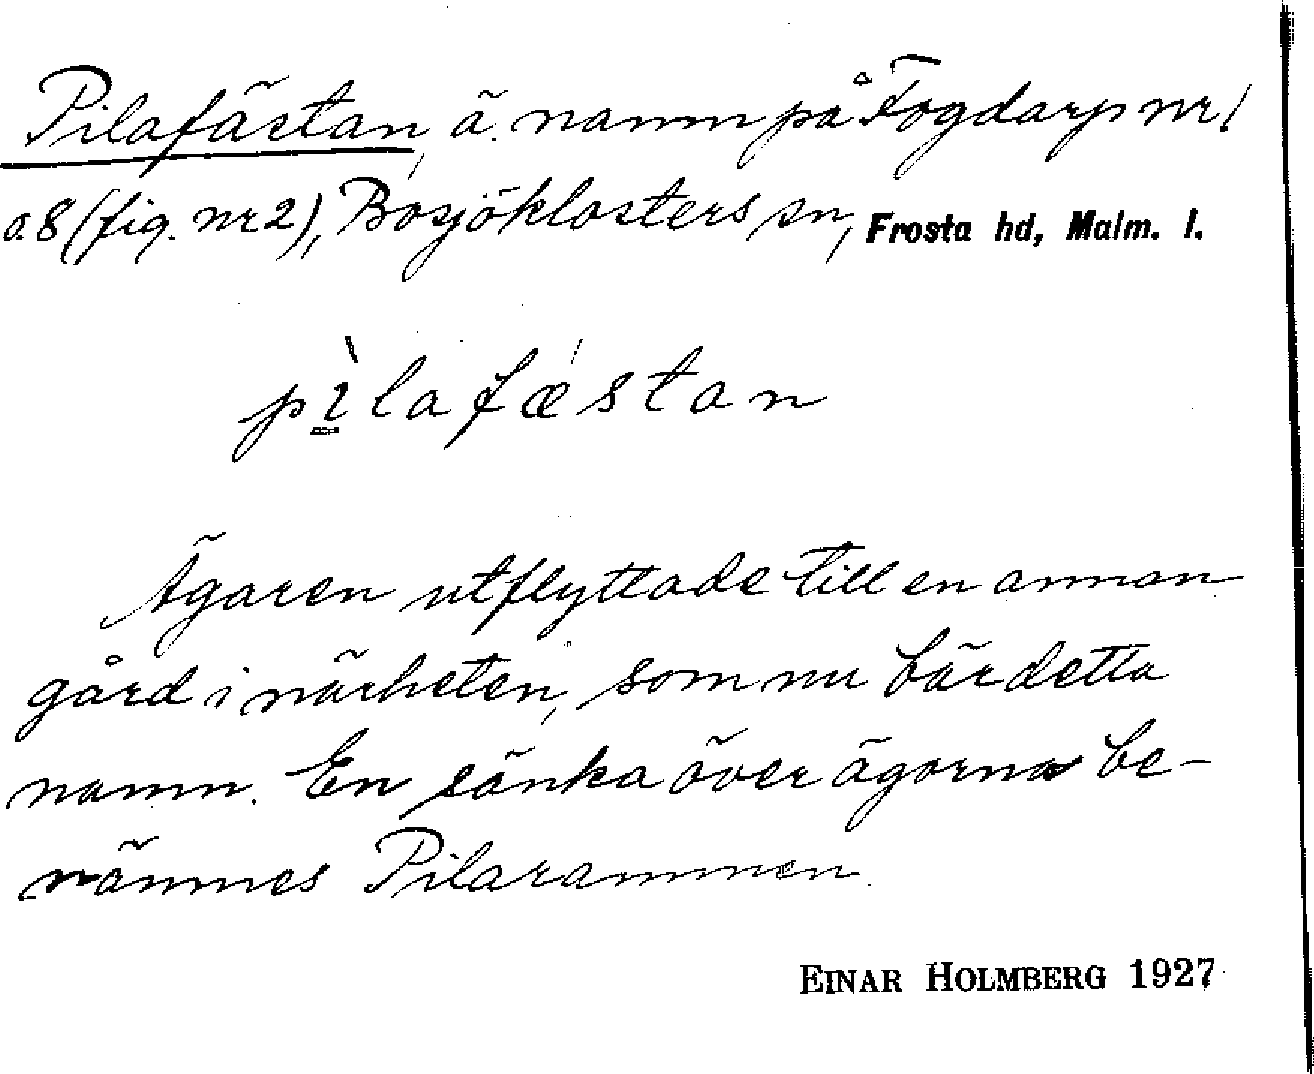 Pilafästan, ä. namn på Fogdarp nr 1
o. 8 (fig. nr 2), Bosjöklosters sn, Frosta hd, Malm. l.
pìlafæ´stan
Ägaren utflyttade till en annan
gård i närheten, som nu bär detta
namn. En sänka över ägorna be-
nämnes Pilarammen.
EINAR HOLMBERG 1927